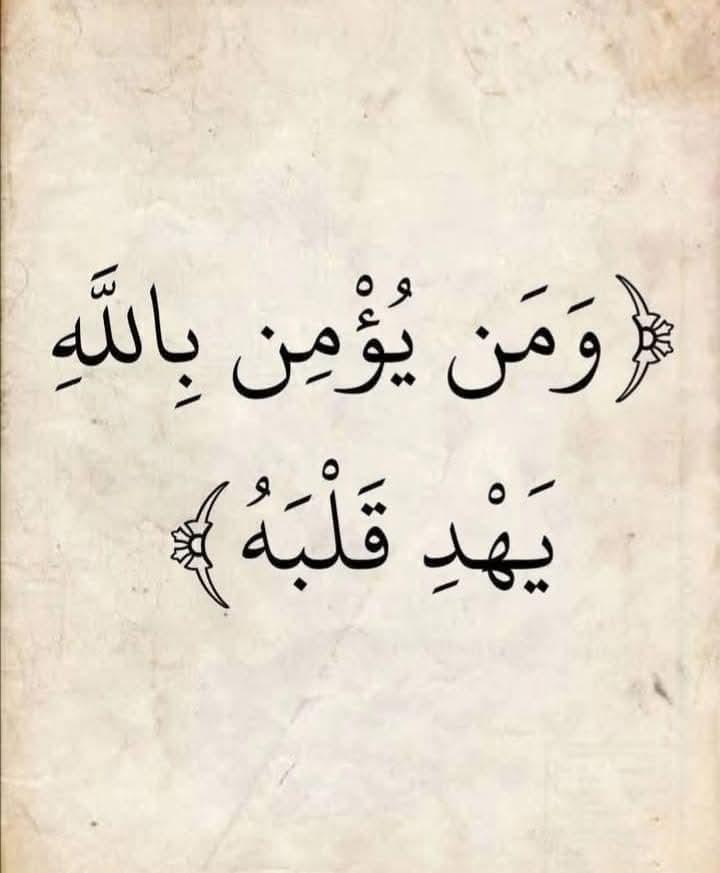 ﴿ وَمَن يُؤْمِن بِاللَّهِ
يَهْدِ قَلْبَهُ ﴾